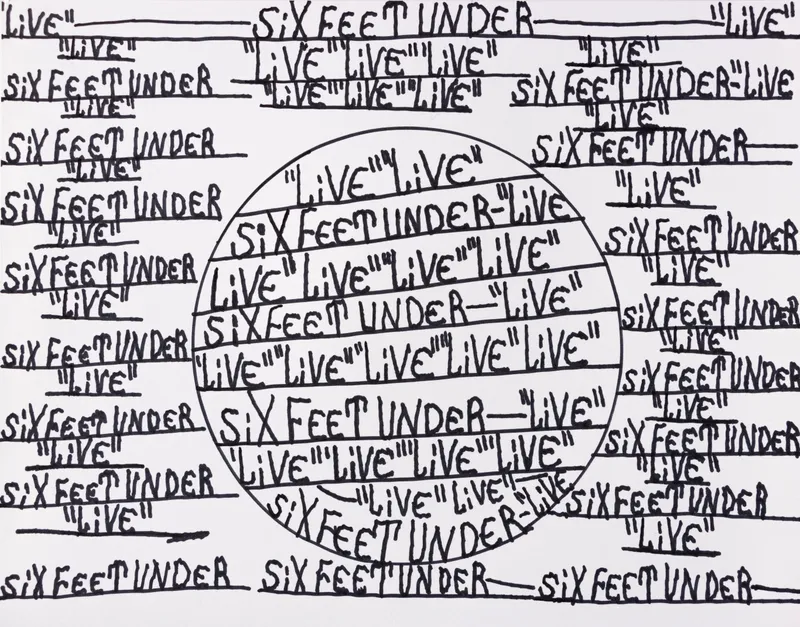 "LiVE"—SiX FEET UNDER—"LiVE"
"LiVE"
SiX FEET UNDER
"LiVE"
SiX FEET UNDER
"LiVE"
SiX FEET UNDER
"LiVE"
SiX FEET UNDER
"LiVE"
SiX FEET UNDER
"LiVE"
SiX FEET UNDER
"LiVE"
SiX FEET UNDER
"LiVE"
"LiVE" "LiVE" "LiVE"
"LiVE" "LiVE" "LiVE"
"LiVE" "LiVE"
SiX FEET UNDER-"LiVE
LiVE" LiVE" "LiVE" "LiVE"
SiX FEET UNDER—"LiVE"
"LiVE" "LiVE" "LiVE" "LiVE" LiVE"
SiX FEET UNDER—"LiVE"
"LiVE" "LiVE" "LiVE" "LiVE"
"LiVE" LiVE"
SiX FEET UNDER-"LiVE
"LiVE"
SiX FEET UNDER-"LiVE
"LiVE"
SiX FEET UNDER—
"LiVE"
SiX FEET UNDER
"LiVE"
SiX FEET UNDER
"LiVE"
SiX FEET UNDER
"LiVE"
SiX FEET UNDER
"LiVE"
SiX FEET UNDER
"LiVE"
SiX FEET UNDER SiX FEET UNDER—SiX FEET UNDER—